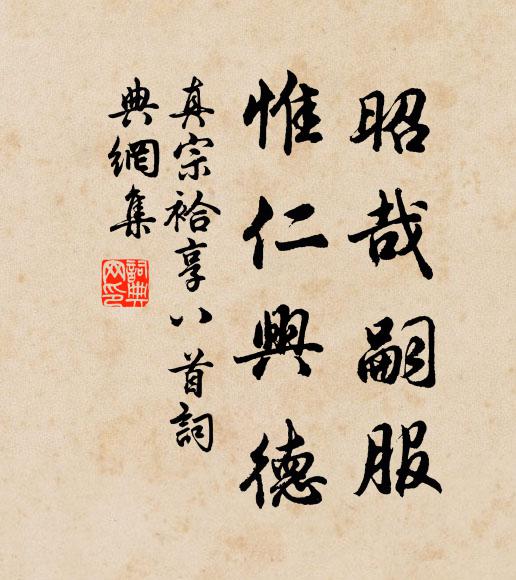 昭哉嗣服
惟仁興德
真宗祫享八首詞
典網集
詞典
网印